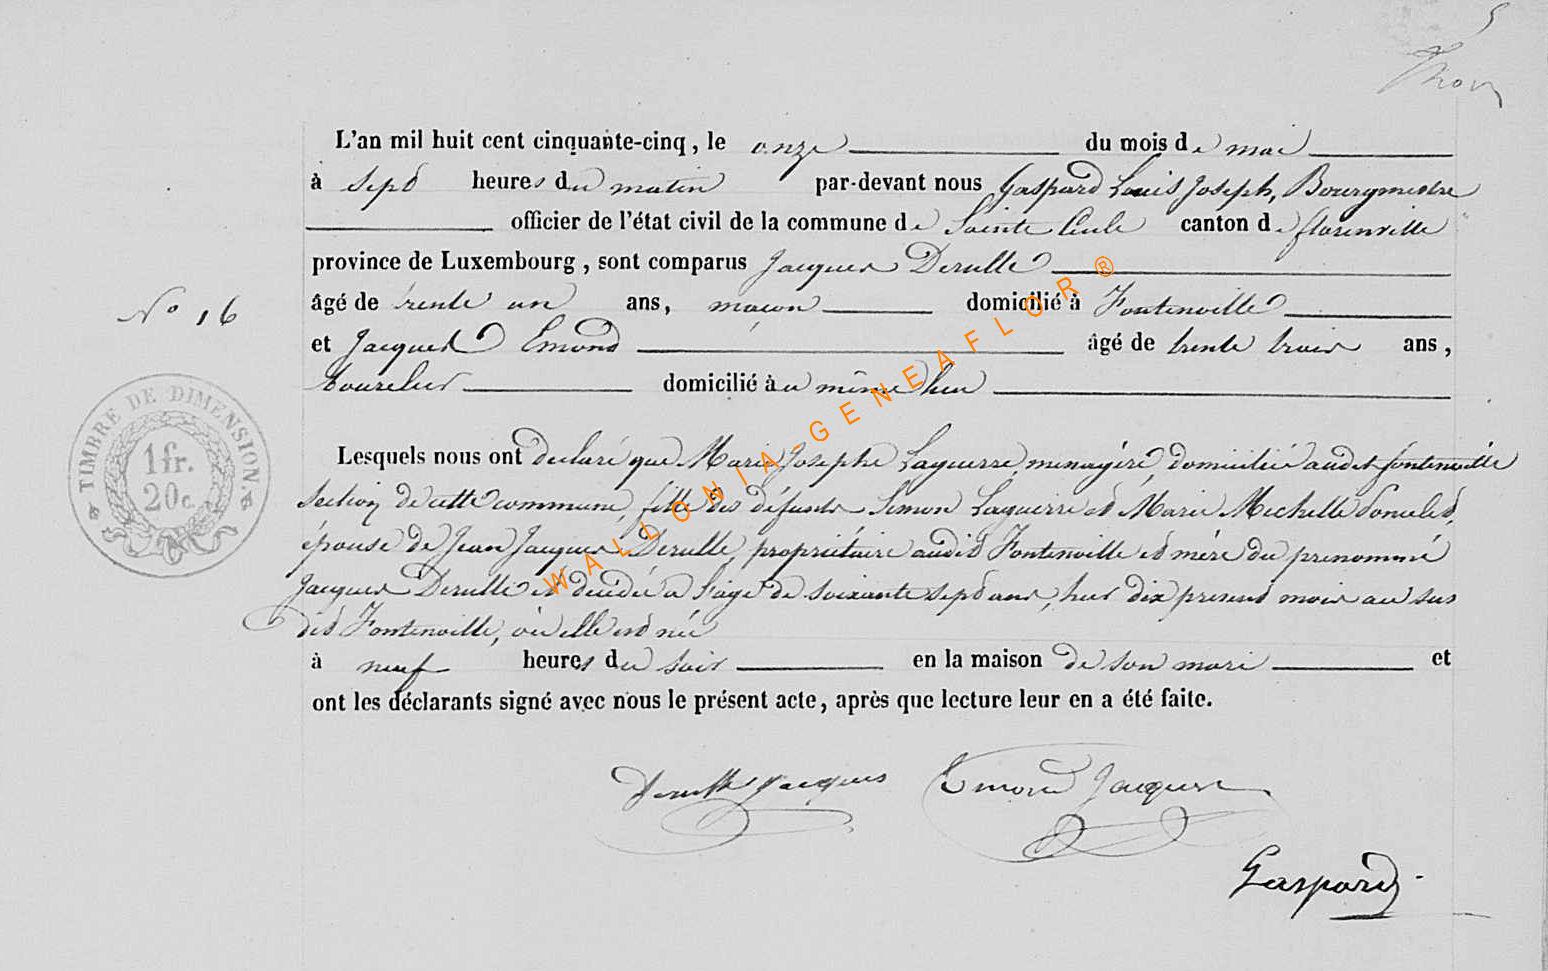 5
L'an mil huit cent cinquante-cinq, le onze du mois de mai
à sept heures du matin par-devant nous Gaspard Louis Joseph, Bourgmestre
officier de l'état civil de la commune de Sainte Cecile canton de florenville
province de Luxembourg, sont comparus Jacques Derulle
âgé de trente un ans, maçon domicilié à Fontenoille
et Jacques Emond âgé de trente trois ans,
bourelier domicilié au même lieu
No 16
TIMBRE DE DIMENSION.
1 fr.
20 c.
Lesquels nous ont declaré que Marie Josephe Laguerre, menagère domiciliée audit fontenoille
section de cette commune, fille des défunts Simon Laguerre et Marie Michelle
épouse de Jean Jacques Derulle, propriétaire audit Fontenoille et mère du prenommé
Jacques Derulle est decedée a l'age de soixante sept ans, hier dix present mois au sus
dit Fontenoille, où elle est née
à neuf heures du soir en la maison de son mari et
ont les déclarants signé avec nous le présent acte, après que lecture leur en a été faite.
Derulle Jacques Emond Jacques
Gaspard
WALLONIA-GENEAFLOR®